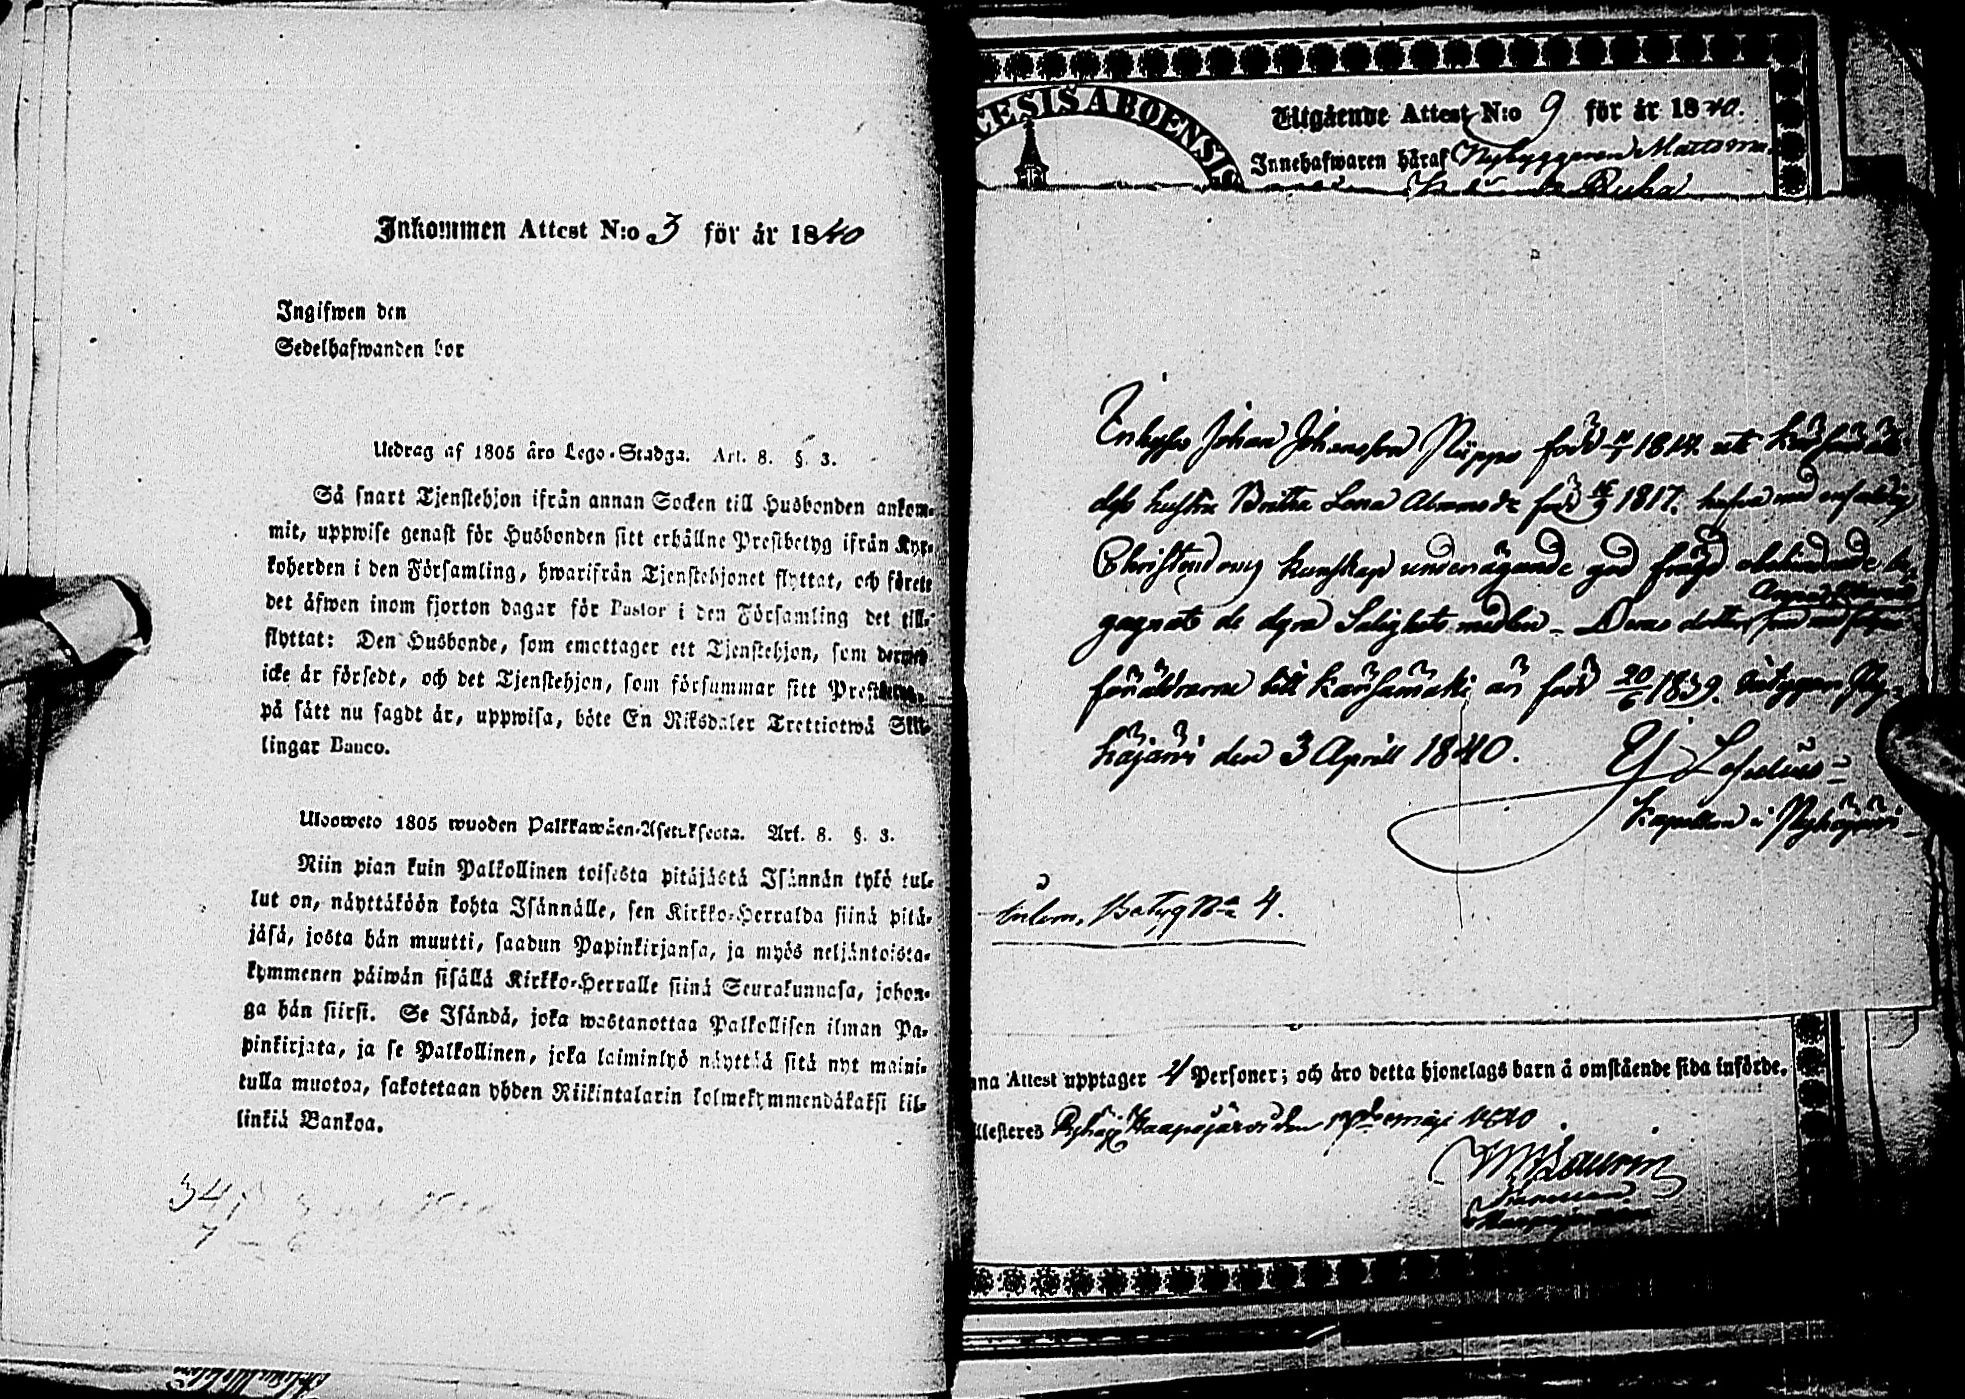 Inkommen Attest N:o 3 för år 1840
Ingifwen den
Sedelhafwanden bor
Utdrag af 1805 års Lego-Stadga. Art. 8. §. 3.
Så snart Tjenstehjon ifrån annan Socken till Husbonden ankom-
mit, uppwise genast för Husbonden sitt erhållne Prestbetyg ifrån Kyr-
koherden i den Församling, hwarifrån Tjenstehjonet flyttat, och förete
det äfwen inom fjorton dagar för Pastor i den Församling det till-
flyttat: Den Husbonde, som emottager ett Tjenstehjon, som dermed
icke är försedt, och det Tjenstehjon, som försummar sitt Prestbetyg,
på sätt nu sagdt är, uppwisa, böte En Riksdaler Trettiotwå Skil-
lingar Banco.
Ulosweto 1805 wuoden Palkkawäen-Asetuksesta. Art. 8. §. 3.
Niin pian kuin Palkollinen toisesta pitäjästä Isännän tykö tul-
lut on, näyttäköön kohta Isännälle, sen Kirkko-Herralda siinä pitä-
jäsä, josta hän muutti, saadun Papinkirjansa, ja myös neljäntoista-
kymmenen päiwän sisällä Kirkko-Herralle siinä Seurakunnasa, johon-
ga hän siirsi. Se Isändä, joka wastanottaa Palkollisen ilman Pa-
pinkirjata, ja se Palkollinen, joka laiminlyö näyttää sitä nyt maini-
tulla muotoa, sakotetaan yhden Riikintalarin kolmekymmendäkaksi kil-
linkiä Bankoa.
34
7
CESIS ABOENSIS
Utgående Attest N:o 9 för år 1840.
Innehafwaren häraf Nybyggaren Matts
Ruha
Johan Johansson Niippa född 1814 uti
dess hustru Britha Lena född 1817. hafva med enfaldig
Christendoms kunskap under ägande god frägd obehindrade be-
gagnat de dyra Salighets medlen - Deras dotter
föräldrarne till Kärsämäki är född 20/6 1839. Py-
häjärvi den 3 Aprill 1840.
Kapellan i Pyhäjärvi
Betyg No 4.
na Attest upptager 4 Personer; och äro detta hjonelags barn å omstående sida införde.
llesteres Haapajärvi den maji 1840